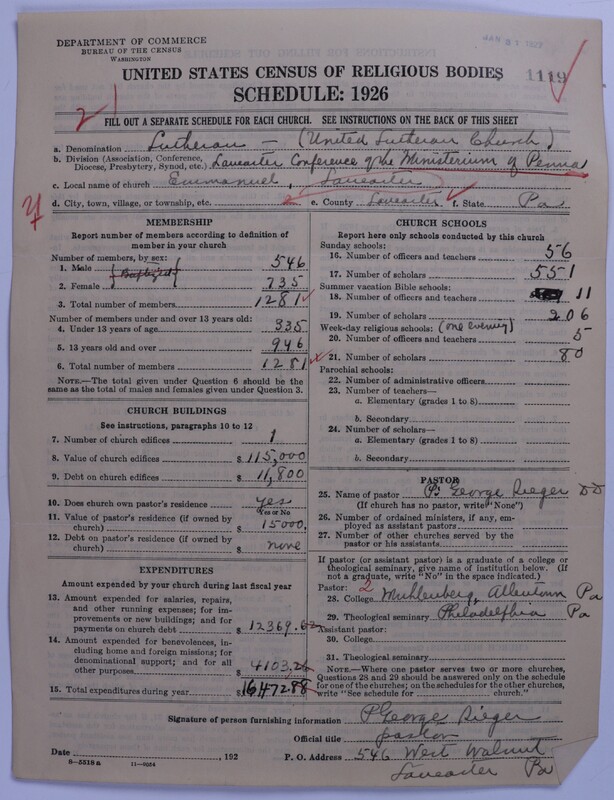 JAN 31 1927
DEPARTMENT OF COMMERCE
BUREAU OF THE CENSUS
WASHINGTON
UNITED STATES CENSUS OF RELIGIOUS BODIES
1119
SCHEDULE: 1926
FILL OUT A SEPARATE SCHEDULE FOR EACH CHURCH. SEE INSTRUCTIONS ON THE BACK OF THIS SHEET
a. Denomination Lutheran — (United Lutheran Church)
b. Division (Association, Conference, Diocese, Presbytery, Synod, etc.) Lancaster Conference of the Ministerium of Penna
c. Local name of church Emmanuel, Lancaster
d. City, town, village, or township, etc. e. County Lancaster f. State Pa
MEMBERSHIP
Report number of members according to definition of
member in your church
Number of members, by sex:
1. Male (Baptized) 546
2. Female 735
3. Total number of members 1281
Number of members under and over 13 years old:
4. Under 13 years of age 335
5. 13 years old and over 946
6. Total number of members 1281
NOTE.—The total given under Question 6 should be
the same as total of males and females given under Question 3.
CHURCH BUILDINGS
See instructions, paragraphs 10 to 12
7. Number of church edifices 1
8. Value of church edifices $ 115,000
9. Debt on church edifices $ 11,800
10. Does church own pastor's residence yes
Yes or No
11. Value of pastor's residence (if owned by
church) $ 15000.
12. Debt on pastor's residence (if owned by
church) $ none
EXPENDITURES
Amount expended by your church during last fiscal year
13. Amount expended for salaries, repairs,
and other running expenses; for im-
provements or new buildings; and for
payments on church debt $ 12369.62
14. Amount expended for benevolences, in-
cluding home and foreign missions; for
denominational support; and for all
other purposes $ 4103.26
15. Total expenditures during year $ 16,472.88
CHURCH SCHOOLS
Report here only schools conducted by this church
Sunday schools:
16. Number of officers and teachers 56
17. Number of scholars 551
Summer vacation Bible schools:
18. Number of officers and teachers 11
19. Number of scholars 206
Week-day religious schools: (one evening)
20. Number of officers and teachers 5
21. Number of scholars 80
Parochial schools:
22. Number of administrative officers
23. Number of teachers—
a. Elementary (grades 1 to 8)
b. Secondary
24. Number of scholars—
a. Elementary (grades 1 to 8)
b. Secondary
PASTOR
25. Name of pastor P. George Sieger DD
(If church has no pastor, write "None")
26. Number of ordained ministers, if any, em-
ployed as assistant pastors
27. Number of other churches served by the
pastor or his assistants
If pastor (or assistant pastor) is a graduate of a college or
theological seminary, give name of institution below. (If
not a graduate, write "No" in the space indicated.)
Pastor: 2
28. College Muhlenberg, Allentown Pa
29. Theological seminary Philadelphia Pa
Assistant pastor:
30. College
31. Theological seminary
NOTE.—Where one pastor serves two or more churches,
Questions 28 and 29 should be answered only on the schedule
for one of the churches; on the schedules for the other churches,
write "See schedule for church."
Signature of person furnishing information P George Sieger
Official title pastor
Date , 192
P. O. Address 546 West Walnut
Lancaster Pa
8—5518a 11—9054